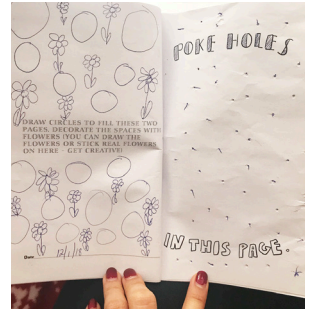 DRAW CIRCLES TO FILL THESE TWO
PAGES. DECORATE THE SPACES WITH
FLOWERS (YOU CAN DRAW THE
FLOWERS OR STICK REAL FLOWERS
ON HERE - GET CREATIVE!)
Date
POKE HOLES
IN THIS PAGE.